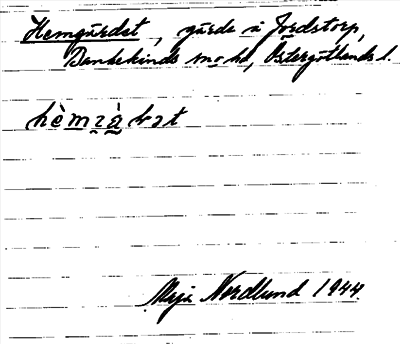 Hemgärdet, gärde å Jordstorp,
Bankekinds sn o hd, Östergötlands l.
hèmɪàbət
Maja Nordlund 1944.